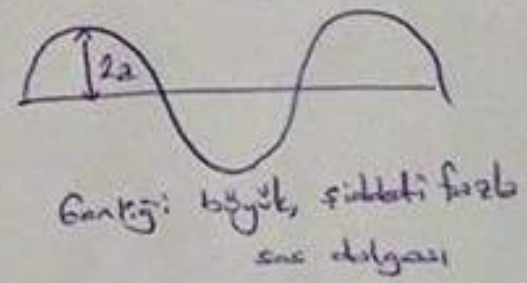 2a
Genliği büyük, şiddeti fazla
ses dalgası